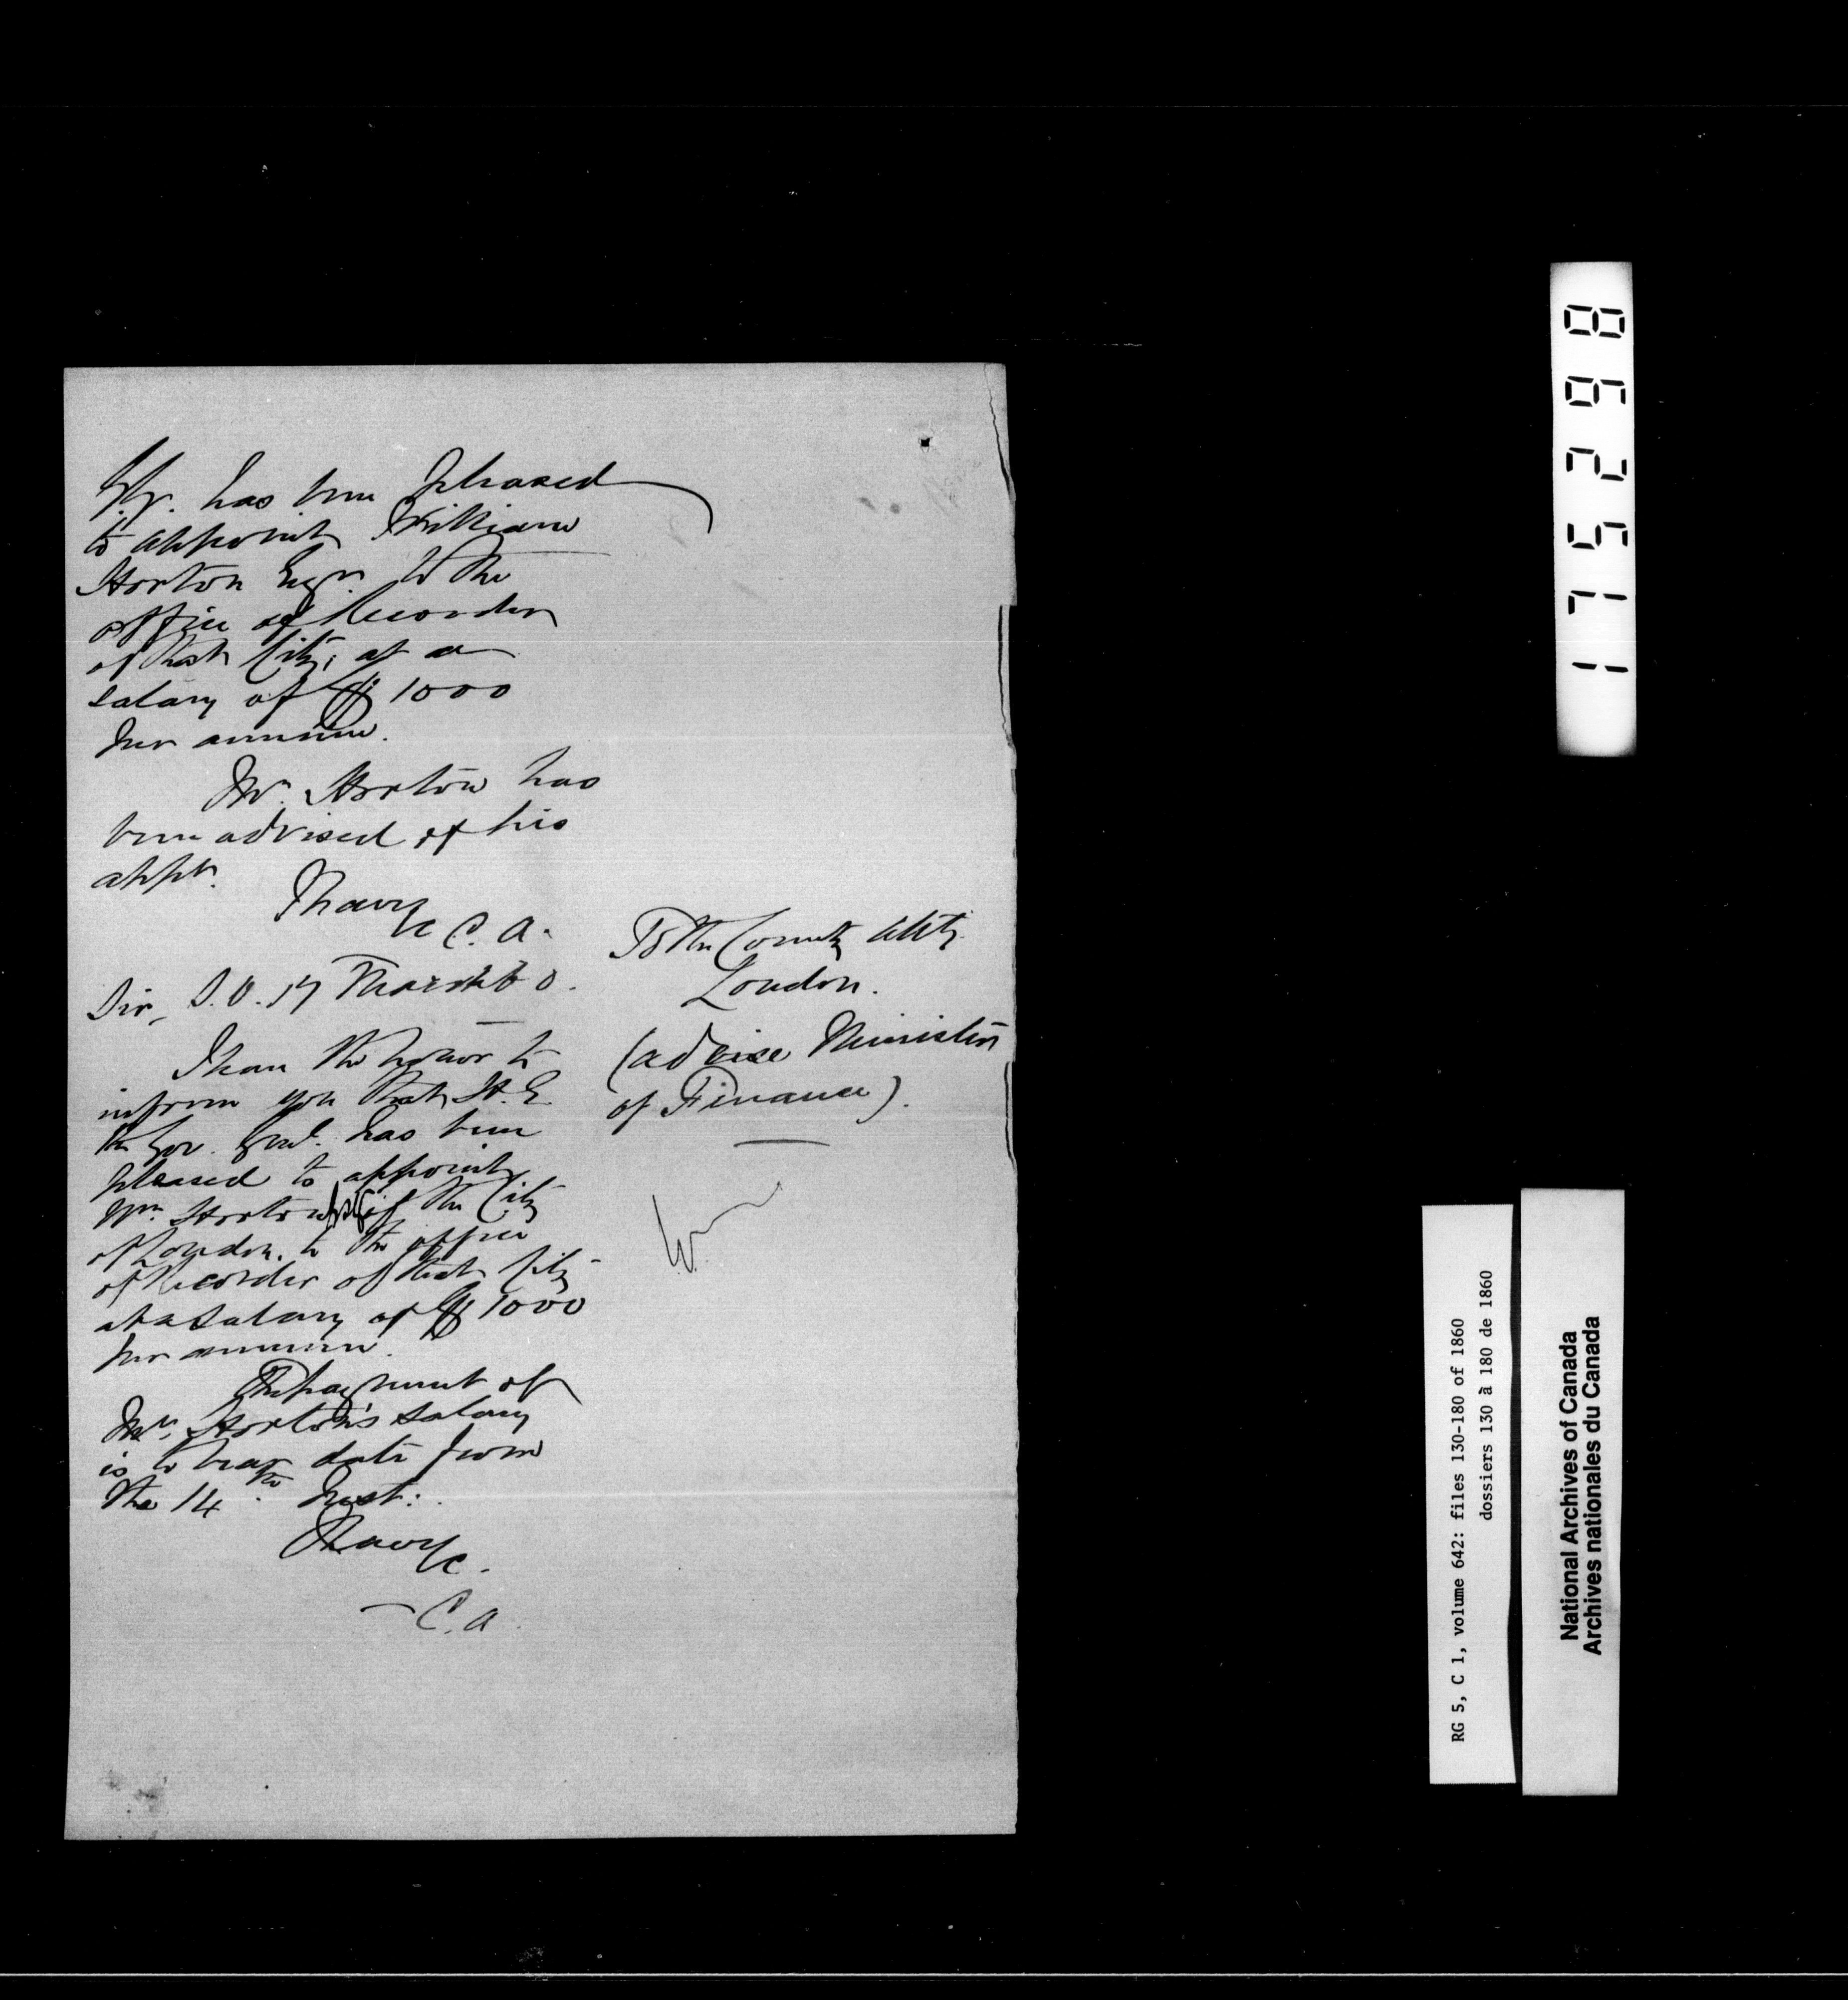 has been pleased
to appoint William
Horton Esqr. to the
office of Recorder
of that City, at a
salary of $1000
per annum.
Mr. Horton has
been advised of his
appt.
I have &c C. A.
Sir, S.O. 17 March 60.
I have the honor to
inform you that H. E.
the Gov. Genl. has been
pleased to appoint
Wm. Horton Esq of the City
of London, to the office
of Recorder of that City
at a salary of $1000
per annum.
The payment of
Mr. Horton's salary
is to bear date from
the 14th. Inst:.
I have &c.
C. A.
To the County Atty.
London.
(advise Minister
of Finance).
175298
RG 5, C 1, volume 642: files 130-180 of 1860
dossiers 130 à 180 de 1860
National Archives of Canada
Archives nationales du Canada